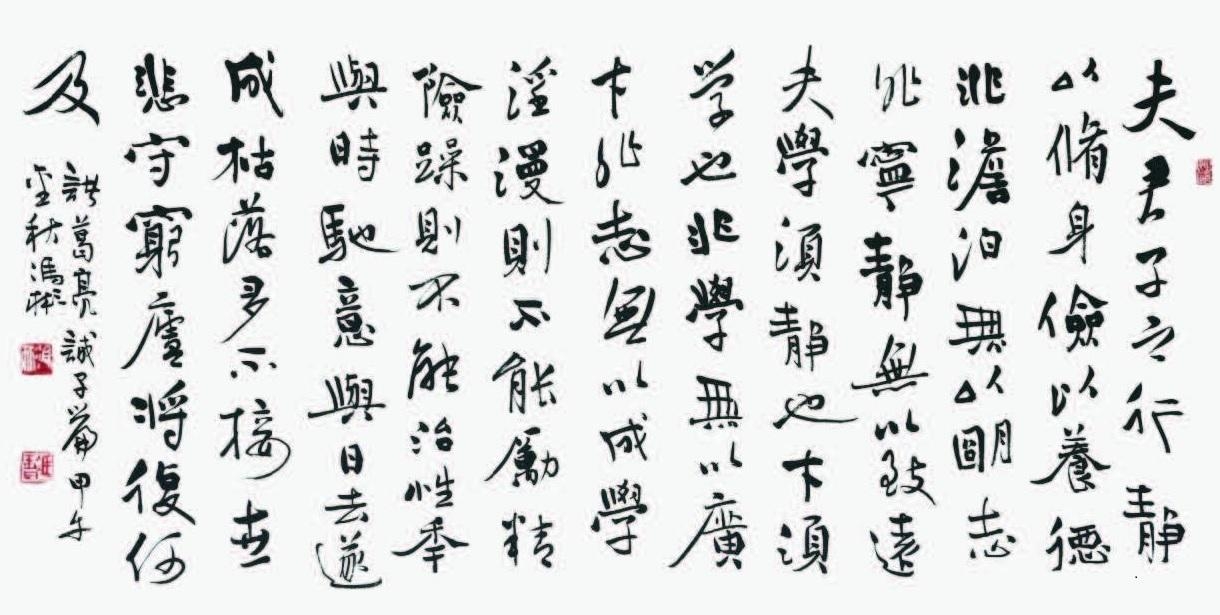 夫君子之行靜
以脩身儉以養德
非澹泊無以朙志
非寧靜無以致遠
夫學須靜也才須
学也非學無以廣
才非志無以成學
淫漫則不能勵精
險躁則不能治性年
與時馳意與日去遂
成枯落多不接世
悲守窮廬將復何
及
諸葛亮誡子篇甲午
秋馮彬